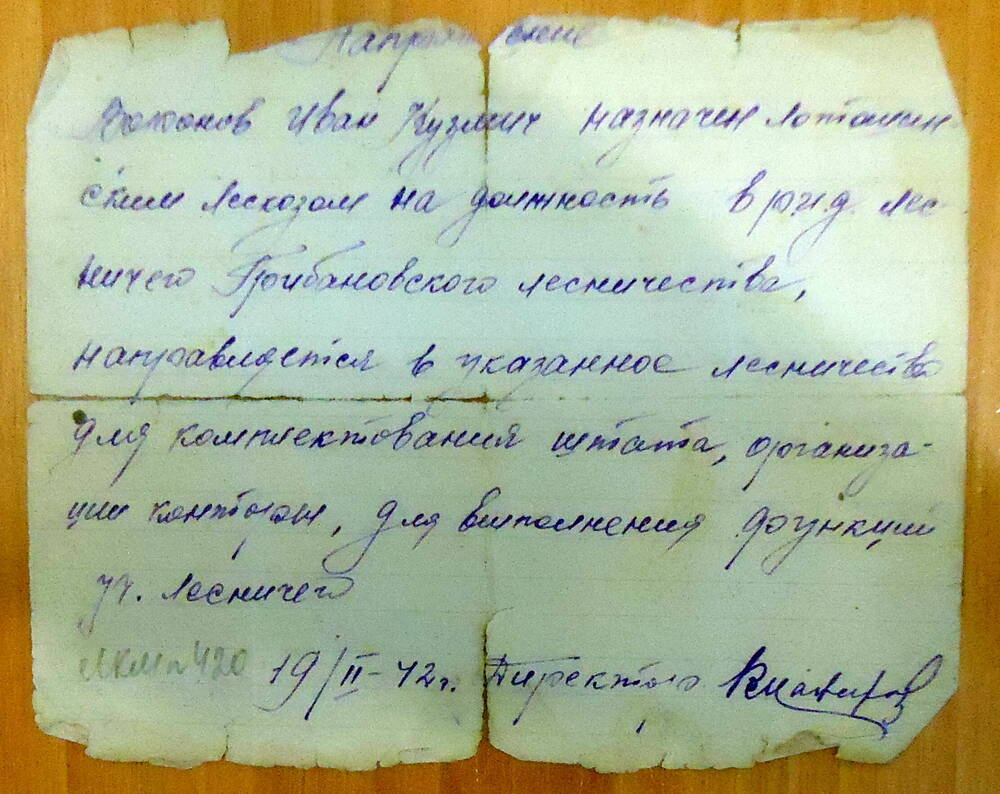 Направление
Иван Кузмич назначен Лоташин
ским лесхозом на должность в р.и.д. лес
ничего Грибановского лесничества,
направляется в указанное лесничество
для комплектования штата, организа-
ции конторы, для выполнения функций
уч. лесничего
ЛКМп 420 19/II-42г. Директор